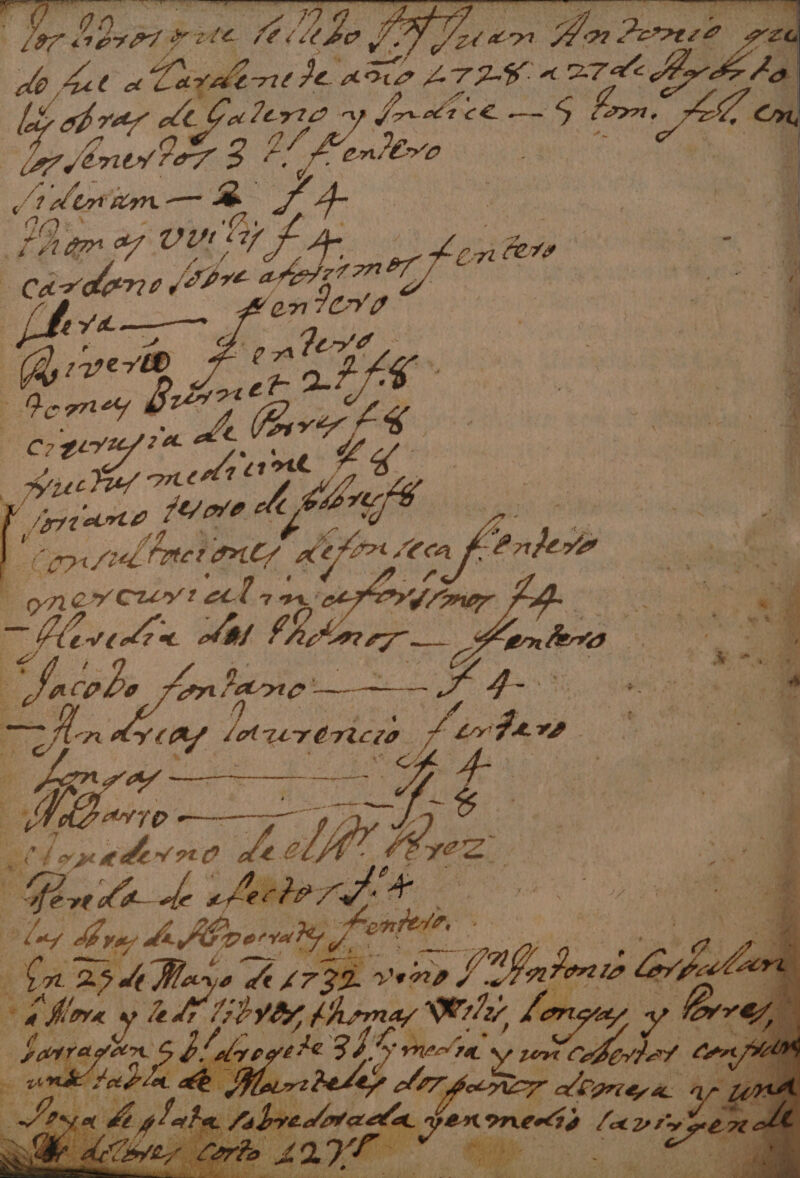 los libros que se llebo Jn Juan Antonio qu
do fue a Cardenete año 1728 a 27 de Agosto
las obras de Galeno y Indice — 5 tom. fol. en
los senertos 3 t.s f. entero
sidenam — 2 f 4
thomas vvilis f 4
cardano sobre aforismos f entero
Llera — f entero
Riverio f entero
tomas Burnet 2 t f. 8
cirurujia de Porres f 8
fructus medicine f 8
soriano tesoro de pobres f 8
Consultaciones de fonseca f. entero
mercurial in aforismos f 4
— Heredia dos thomos — f entero
Jacobo fontano — f 4
— Andreas laurencio f entero
Longas — f 4
Nabarro — f - 8
el quaderno de el Dr. Perez
Pereda de afectos f.o 4
las obras de Hipocrates f entero.
En 25 de Mayo de 1732 vino Jn Antonio Corbalan
a Mora y le di libros, thomas Wilis, Longas, y Porres,
barragan 5 b.s drogete 3 b.s y media y un cobertor con fran
una tabla de Manteles dos paños de mesa y una
Joya de plata sobredorada y en medio la virgen de
dolores corto 12 Y.s